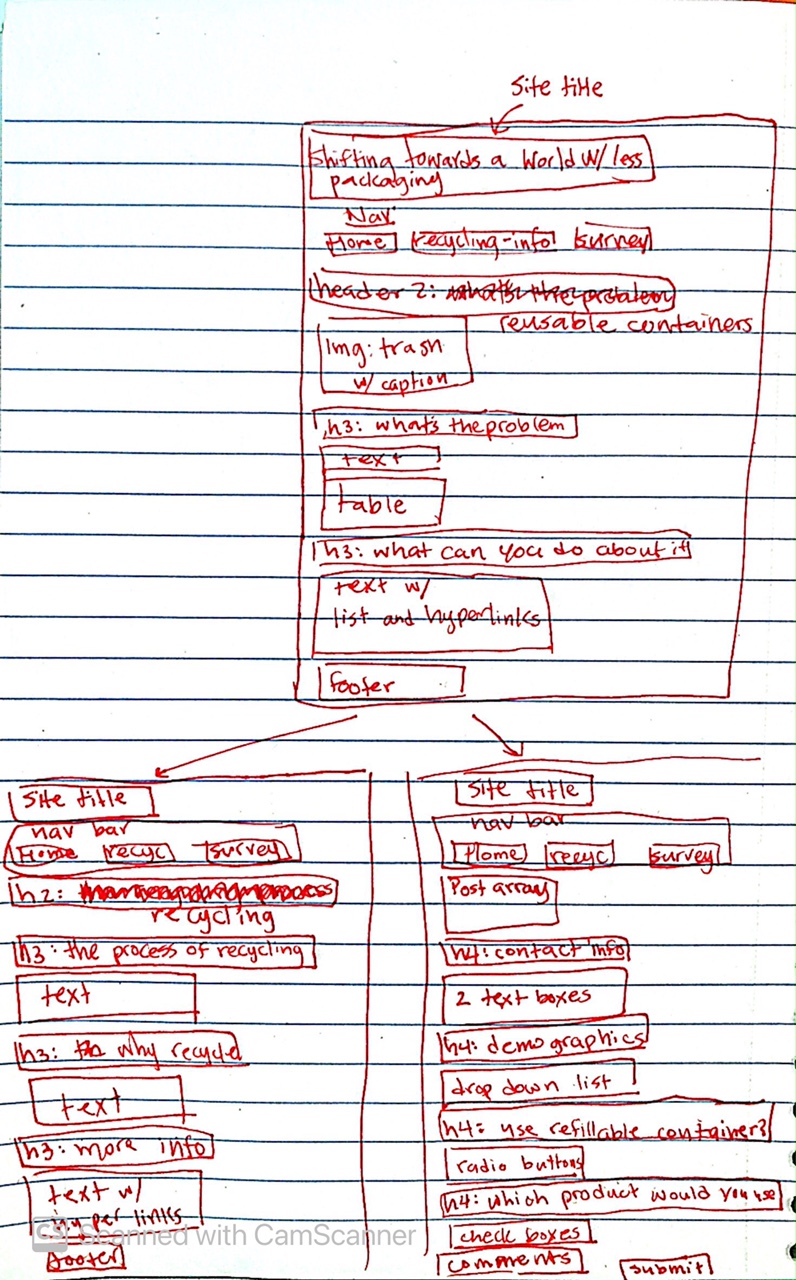 Site title
Shifting towards a World w/ less
packaging
Nav
Home recycling-info survey
header 2: what's the problem
reusable containers
Img: trash
w/ caption
h3: what's the problem
text
table
h3: what can you do about it
text w/
list and hyperlinks
footer
Site title
nav bar
Home recyc survey
h2:
recycling
h3: the process of recycling
text
h3: why recycle
text
h3: more info
text w/
hyperlinks
footer
Site title
nav bar
Home recyc survey
Post array
h4: contact info
2 text boxes
h4: demographics
drop down list
h4: use refillable container?
radio buttons
h4: which product would you use
check boxes
comments submit
CS Scanned with CamScanner